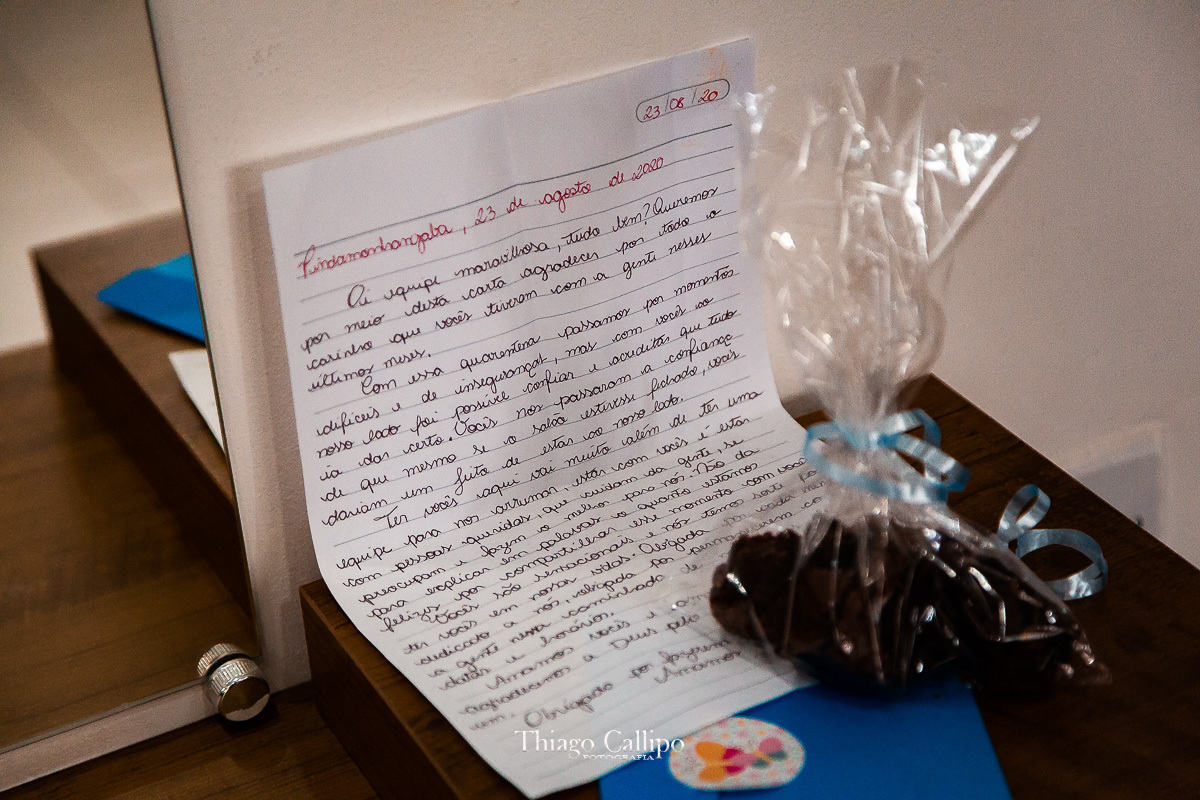 23/08/20
Pindamonhangaba, 23 de agosto de 2020
Oi equipe maravilhosa, tudo bem? Queremos
por meio desta carta agradecer por todo o
carinho que vocês tiveram com a gente nesses
últimos meses.
Com essa quarentena passamos por momentos
difíceis e de inseguranças, mas com vocês ao
nosso lado foi possível confiar e acreditar que tudo
ia dar certo. Vocês nos passaram a confiança
de que mesmo se o salão estivesse fichado, vocês
dariam um jeito de estar ao nosso lado.
Ter vocês aqui vai muito além de ter uma
equipe para nos arrumar, estar com vocês é estar
com pessoas queridas, que cuidam da gente, se
preocupam e fazem o melhor para nós. Não da
para explicar em palavras o quanto estamos
felizes por compartilhar esse momento com vocês
Vocês são sensacionais e nós temos sorte por
ter vocês em nossas vidas. Obrigada por cada
dedicado a nós, obrigada por
a gente nessa caminhada de
datas e horários.
Amamos vocês e
agradecemos a Deus pelo
em.
Obrigado por fazerem
Amamos
Thiago Callipo
FOTOGRAFIA